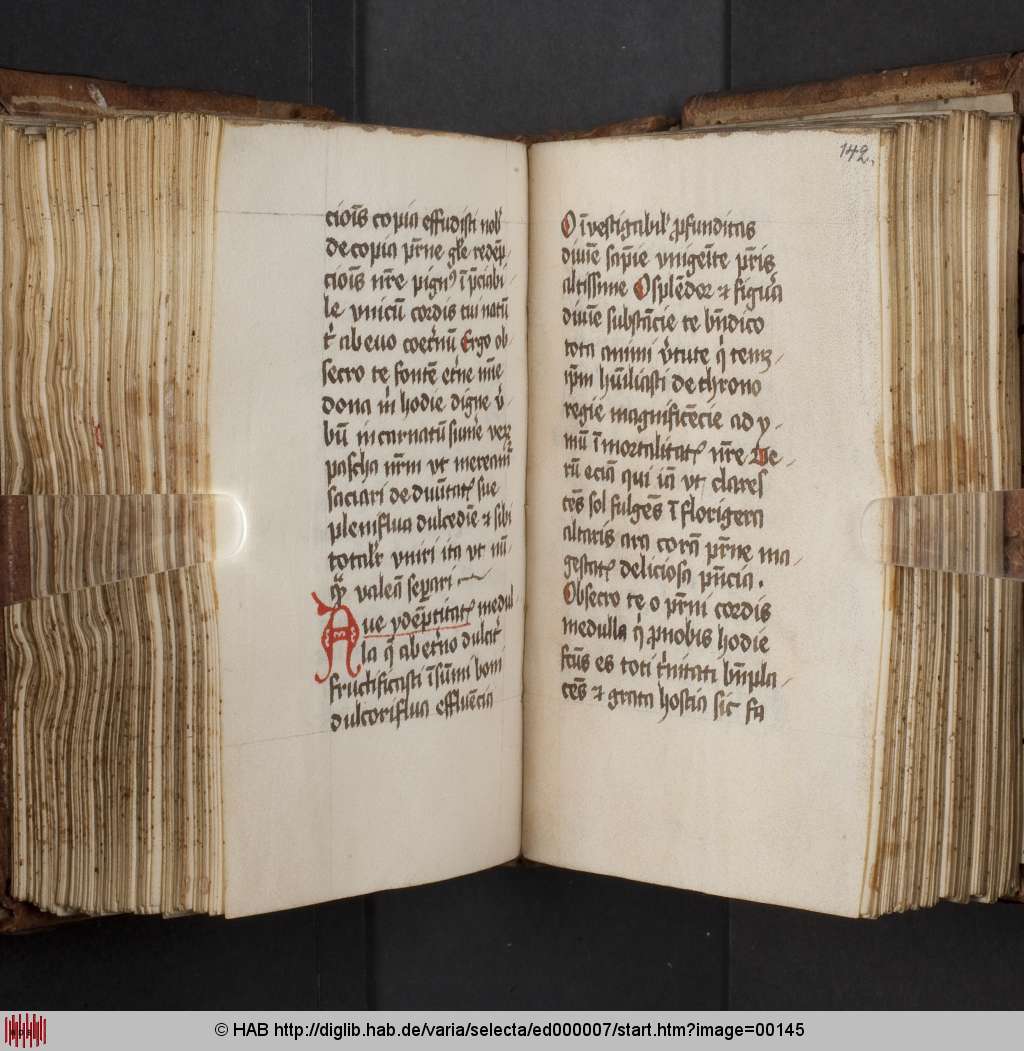 cioīs copia effudisti nob᷒
de copia pr̄ne gl̄e redēp
cioīs nr̄e pignꝰ ī p̄ciabi
le vnicū cordis tui natū
ab euo coet̾nū Ergo ob
secro te fontē et̾ne
dona m̄ hodie digne v̾
bū incarnatū
pascha nr̄m vt
saciari de sue
pleniflua dulcedīe et sibi
vniri ita vt nū
valeā
Aue medul
la q̄ ab et̾no dulcit̾
fructificasti ī sūmi boni
dulcoriflua effluēcia
142.
O īvestigabil᷒ ꝓfunditas
diuīe sap̄ie vnigeīte pr̄is
altissime O splēdor et figura
diuīe substācie te bn̄dico
tota animi v̾tute
ip̄m hūiliasti de throno
regie magnificēcie ad y
mū ī mortalitatꝭ nr̄e Ve
rū eciā qui iā vt clares
cēs sol fulgēs ī florigera
altaris ara corā pr̄ne ma
gestatꝭ deliciosa
Obsecro te o pr̄ni cordis
medulla ꝓ nobis hodie
fc̄us es toti t̾nitati bn̄pla
cēs et grata hostia sic fa
© HAB http://diglib.hab.de/varia/selecta/ed000007/start.htm?image=00145